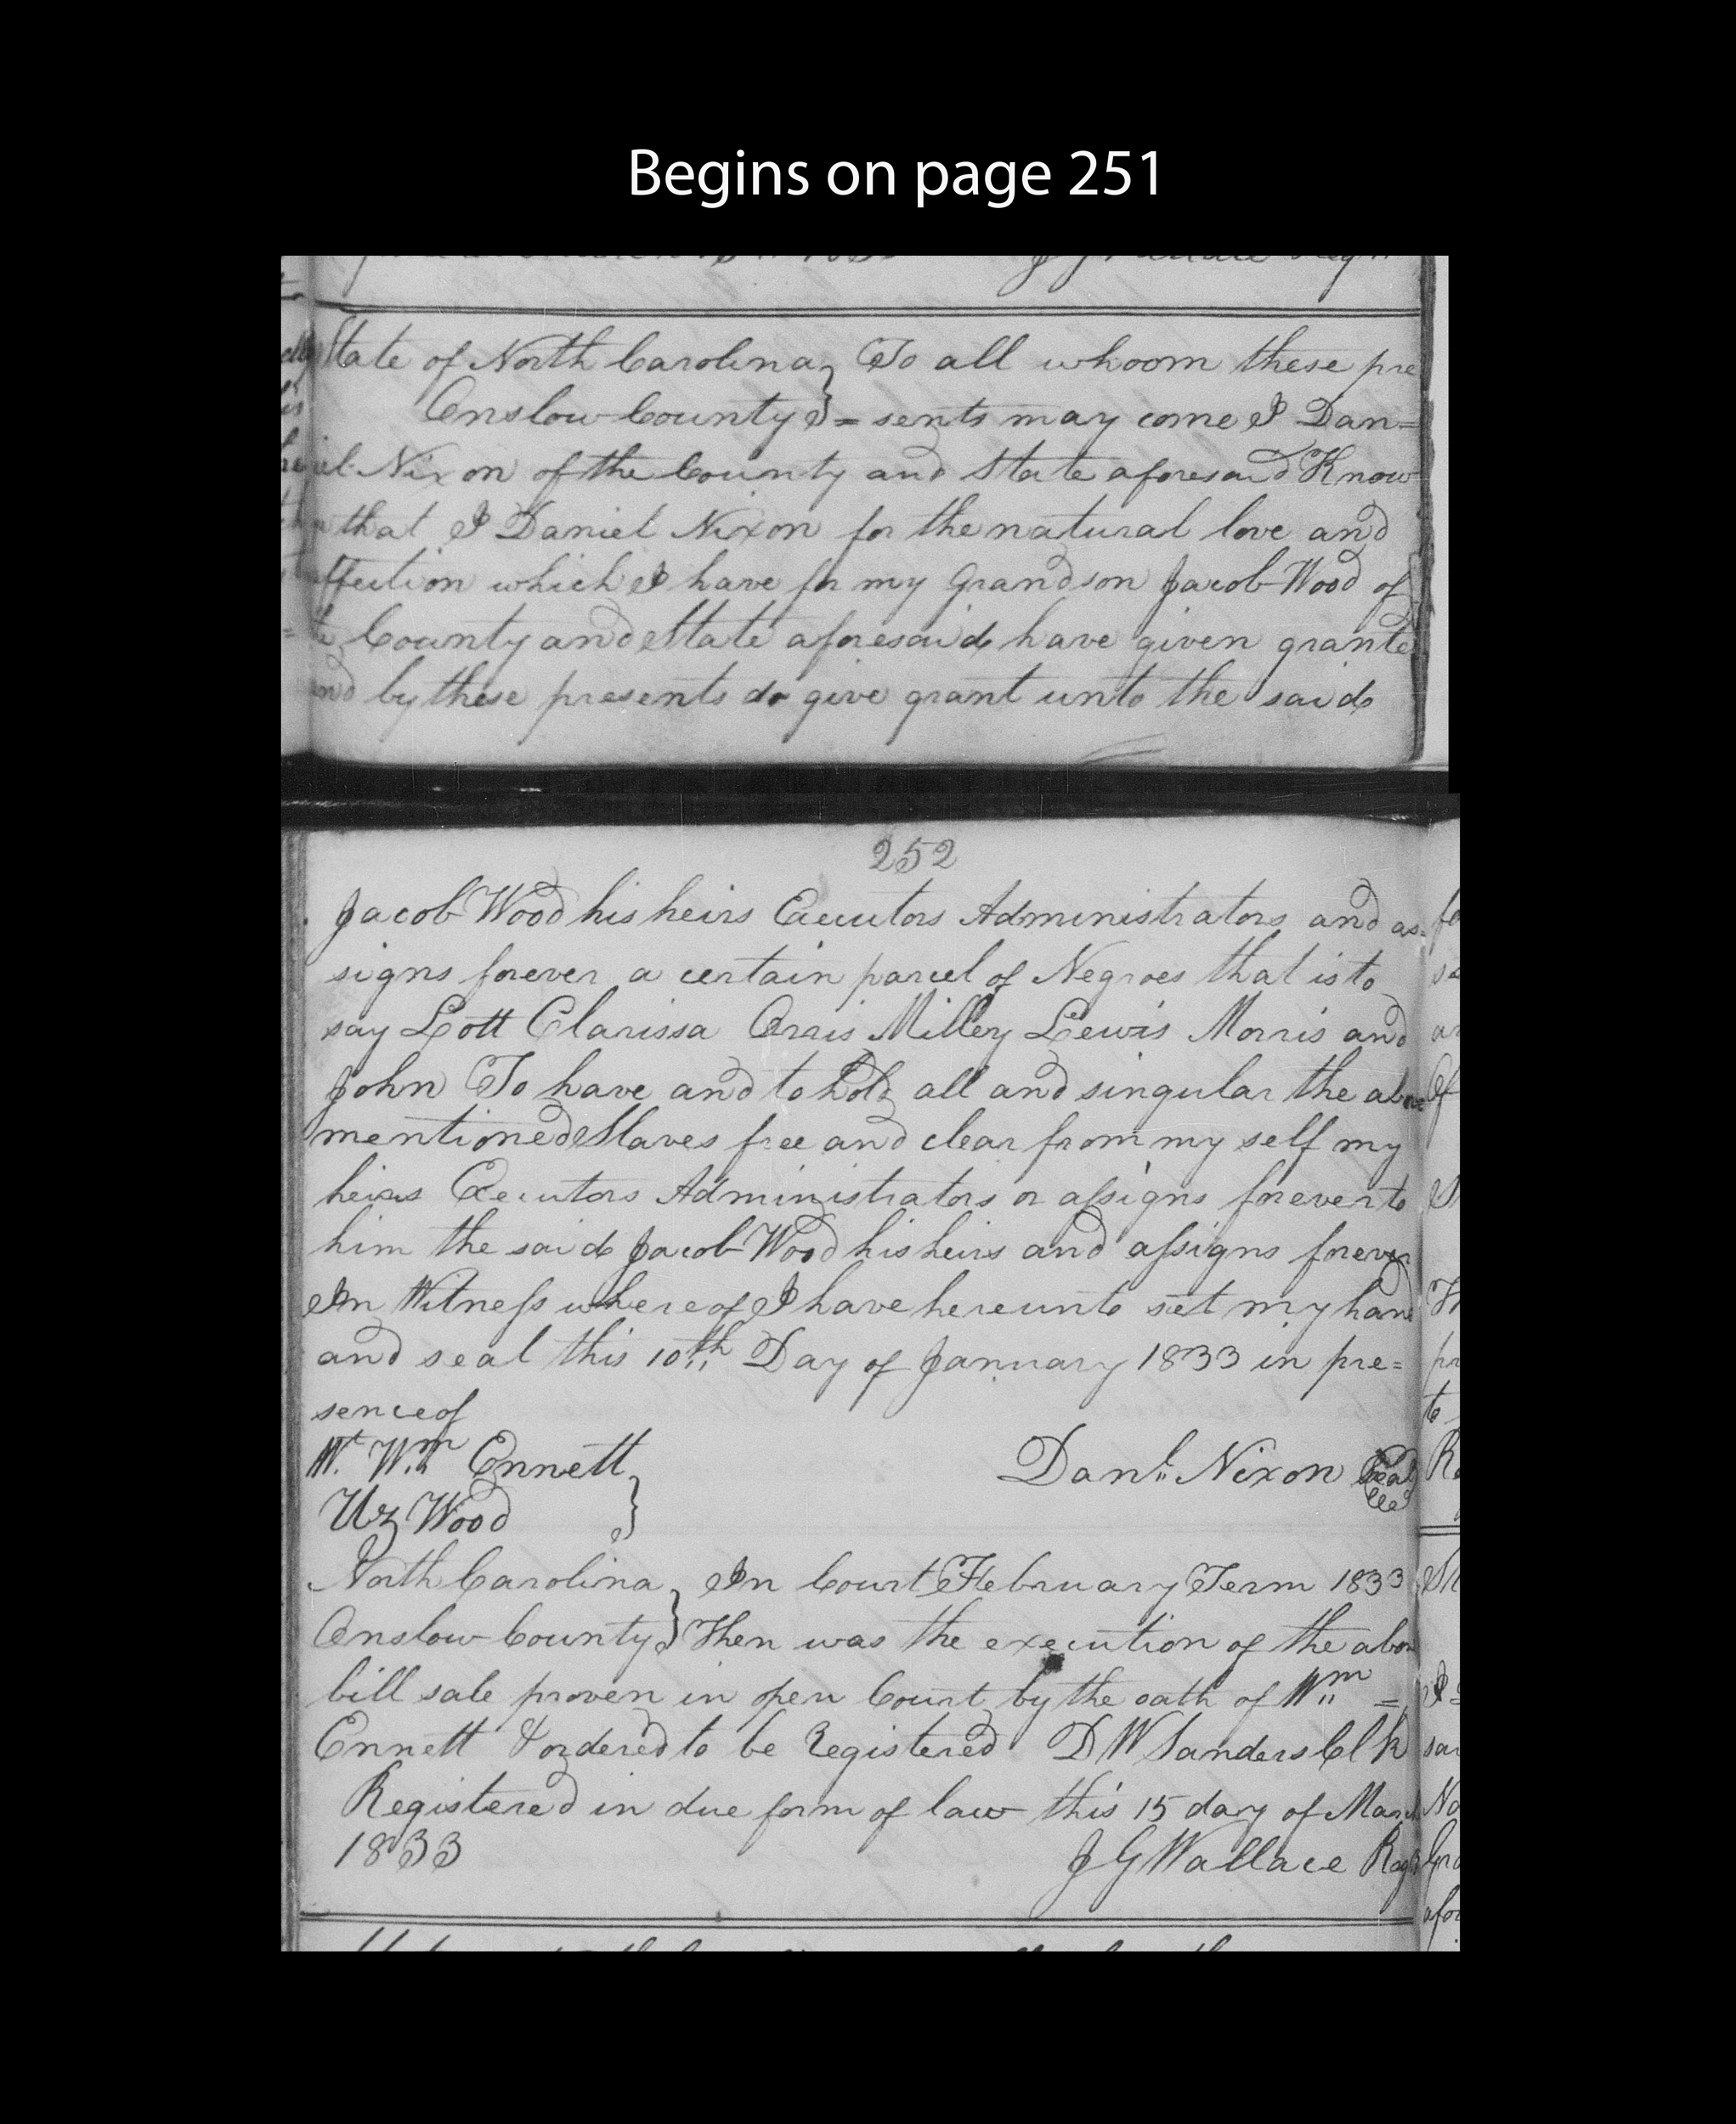 Begins on page 251
State of North Carolina } To all whoom these pre
Onslow County } = sents may come I Dan=
iel Nixon of the County and State aforesaid Know
that I Daniel Nixon for the natural love and
affection which I have for my Grandson Jacob Wood of
County and State aforesaid have given grante
and by these presents do give grant unto the said
252
Jacob Wood his heirs Executors Administrators and as-
signs forever a certain parcel of Negroes that is to
say Lott Clarissa Orris Milley Lewis Morris and
John To have and to hold all and singular the above
mentioned Slaves free and clear from my self my
heirs Executors Administrators or assigns forever to
him the said Jacob Wood his heirs and assigns forever
In Witness whereof I have hereunto set my hand
and seal this 10th Day of January 1833 in pre=
sence of
Wt. Wm Ennett
Danl. Nixon Seal
Uz Wood }
North Carolina } In Court February Term 1833
Onslow County } Then was the execution of the above
bill sale proven in open Court by the oath of Wm =
Ennett & ordered to be Registered D W Sanders Clk
Registered in due form of law this 15 day of March
1833
J G Wallace Regr